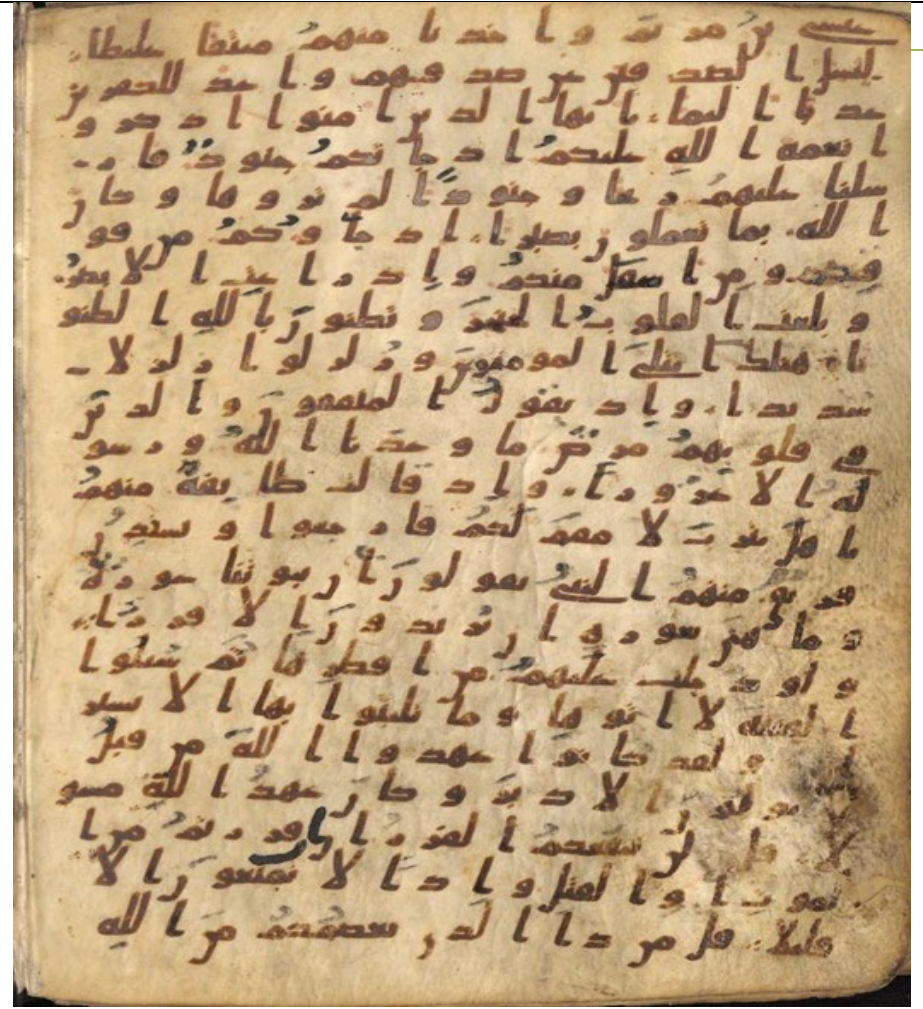 عيسى بن مريم و اخذنا منهم ميثقا غليظا
ليسل الصدقين عن صدقهم و اعد للكفرين
عذابا اليما يايها الذين امنوا اذكرو
ا نعمة الله عليكم اذ جاتكم جنود فار
سلنا عليهم ريحا و جنودا لم تروها و كان
الله بما تعملون بصيرا اذ جاوكم من فو
قكم و من اسفل منكم و اذ زاغت الابصر
و بلغت القلوب الحنجر و تظنون بالله الظنو
نا هنلك ابتلي المومنون و زلزلوا زلزلا
شديدا و اذ يقول المنفقون و الذين
في قلوبهم مرض ما وعدنا الله و رسو
له الا غرورا و اذ قالت طايفة منهم
ياهل يثرب لا مقم لكم فارجعوا و يستذن
فريق منهم النبي يقولون ان بيوتنا عورة
و ما هي بعورة ان يريدون الا فرارا
و لو دخلت عليهم من اقطرها ثم سيلوا
الفتنة لاتوها و ما تلبثوا بها الا يسير
ا و لقد كانوا عهدوا الله من قبل
لا يولون الادبر و كان عهد الله مسو
لا قل لن ينفعكم الفرار ان فررتم من ا
لموت او القتل و اذا لا تمتعون الا
قليلا قل من ذا الذي يعصمكم من الله